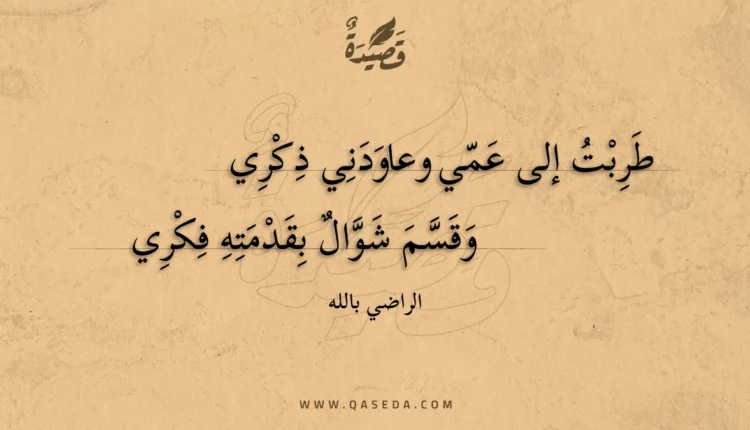 قَصِيدَةٌ
طَرِبْتُ إلى عَمّي وعاوَدَنِي ذِكْرِي
وَقَسَّمَ شَوَّالٌ بِقَدْمَتِهِ فِكْرِي
الراضي بالله
WWW.QASEDA.COM